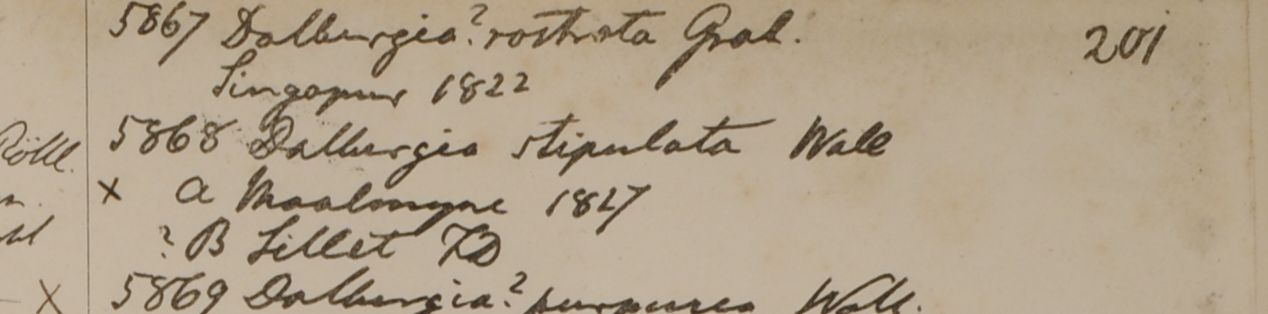 5867 Dalbergia? rostrata Grah. 201
Singapur 1822
Röttl. 5868 Dalbergia stipulata Wall
x a Moalmyne 1827
? B Sillet FD
x 5869 Dalbergia? purpurea Wall.